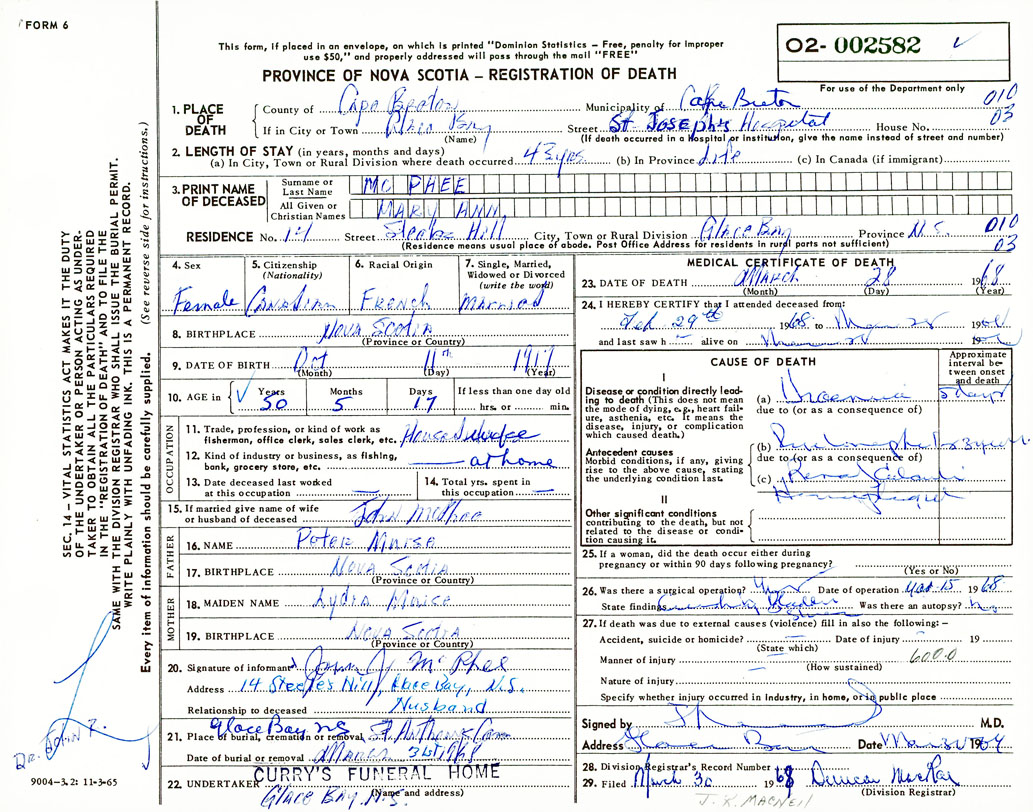 FORM 6
This form, if placed in an envelope, on which is printed "Dominion Statistics – Free, penalty for improper
use $50," and properly addressed will pass through the mail "FREE"
O2- 002582
PROVINCE OF NOVA SCOTIA – REGISTRATION OF DEATH
For use of the Department only
010
03
1. PLACE OF DEATH
County of Cape Breton Municipality of Cape Breton
If in City or Town Glace Bay Street St Joseph's Hospital House No.
(Name) (If death occurred in a Hospital or institution, give the name instead of street and number)
2. LENGTH OF STAY (in years, months and days)
(a) In City, Town or Rural Division where death occurred 43 yrs (b) In Province Life (c) In Canada (if immigrant)
3. PRINT NAME OF DECEASED
Surname or Last Name MC PHEE
All Given or Christian Names MARY ANN
RESIDENCE No. 14 Street Steeles Hill City, Town or Rural Division Glace Bay Province N.S. 010
(Residence means usual place of abode. Post Office Address for residents in rural parts not sufficient) 03
4. Sex Female
5. Citizenship (Nationality) Canadian
6. Racial Origin French
7. Single, Married, Widowed or Divorced (write the word) Married
8. BIRTHPLACE Nova Scotia
(Province or Country)
9. DATE OF BIRTH Oct 11th 1917
(Month) (Day) (Year)
10. AGE in Years 50 Months 5 Days 17 If less than one day old hrs. or min.
OCCUPATION
11. Trade, profession, or kind of work as
fisherman, office clerk, sales clerk, etc. Housewife
12. Kind of industry or business, as fishing,
bank, grocery store, etc. at home
13. Date deceased last worked
at this occupation
14. Total yrs. spent in
this occupation
15. If married give name of wife
or husband of deceased John McPhee
FATHER
16. NAME Peter Muise
17. BIRTHPLACE Nova Scotia
(Province or Country)
MOTHER
18. MAIDEN NAME Lydia Muise
19. BIRTHPLACE Nova Scotia
(Province or Country)
20. Signature of informant John J. McPhee
Address 14 Steele's Hill, Glace Bay, N.S.
Relationship to deceased Husband
21. Place of burial, cremation or removal Glace Bay NS St Anthony Cem
Date of burial or removal March 31st 1968
22. UNDERTAKER CURRY'S FUNERAL HOME
(Name and address)
Glace Bay N.S.
MEDICAL CERTIFICATE OF DEATH
23. DATE OF DEATH March 28 1968
(Month) (Day) (Year)
24. I HEREBY CERTIFY that I attended deceased from:
Feb. 29th 1968 to
and last saw h alive on 19
CAUSE OF DEATH
Approximate interval between onset and death
I
Disease or condition directly leading to death (This does not mean
the mode of dying, e.g., heart failure, asthenia, etc. It means the
disease, injury, or complication
which caused death.)
(a) Uraemia 5 days
due to (or as a consequence of)
Antecedent causes
Morbid conditions, if any, giving
rise to the above cause, stating
the underlying condition last.
(b)
due to (or as a consequence of)
(c) Renal Calculi
II
Other significant conditions
contributing to the death, but not
related to the disease or condition causing it.
25. If a woman, did the death occur either during
pregnancy or within 90 days following pregnancy?
(Yes or No)
26. Was there a surgical operation? Yes Date of operation Mar 15 1968
State findings Was there an autopsy? No
27. If death was due to external causes (violence) fill in also the following: –
Accident, suicide or homicide? Date of injury 19
(State which)
Manner of injury 600.0
(How sustained)
Nature of injury
Specify whether injury occurred in industry, in home, or in public place
Signed by M.D.
Address Glace Bay Date
28. Division Registrar's Record Number
29. Filed March 30 1968 Duncan MacKay
(Division Registrar)
J. K. MACNEIL
SEC. 14 – VITAL STATISTICS ACT MAKES IT THE DUTY
OF THE UNDERTAKER OR PERSON ACTING AS UNDERTAKER TO OBTAIN ALL THE PARTICULARS REQUIRED
IN THE "REGISTRATION OF DEATH" AND TO FILE THE
SAME WITH THE DIVISION REGISTRAR WHO SHALL ISSUE THE BURIAL PERMIT.
WRITE PLAINLY WITH UNFADING INK. THIS IS A PERMANENT RECORD.
Every item of information should be carefully supplied. (See reverse side for instructions.)
DR. JOHN R.
9004–3.2: 11-3-65